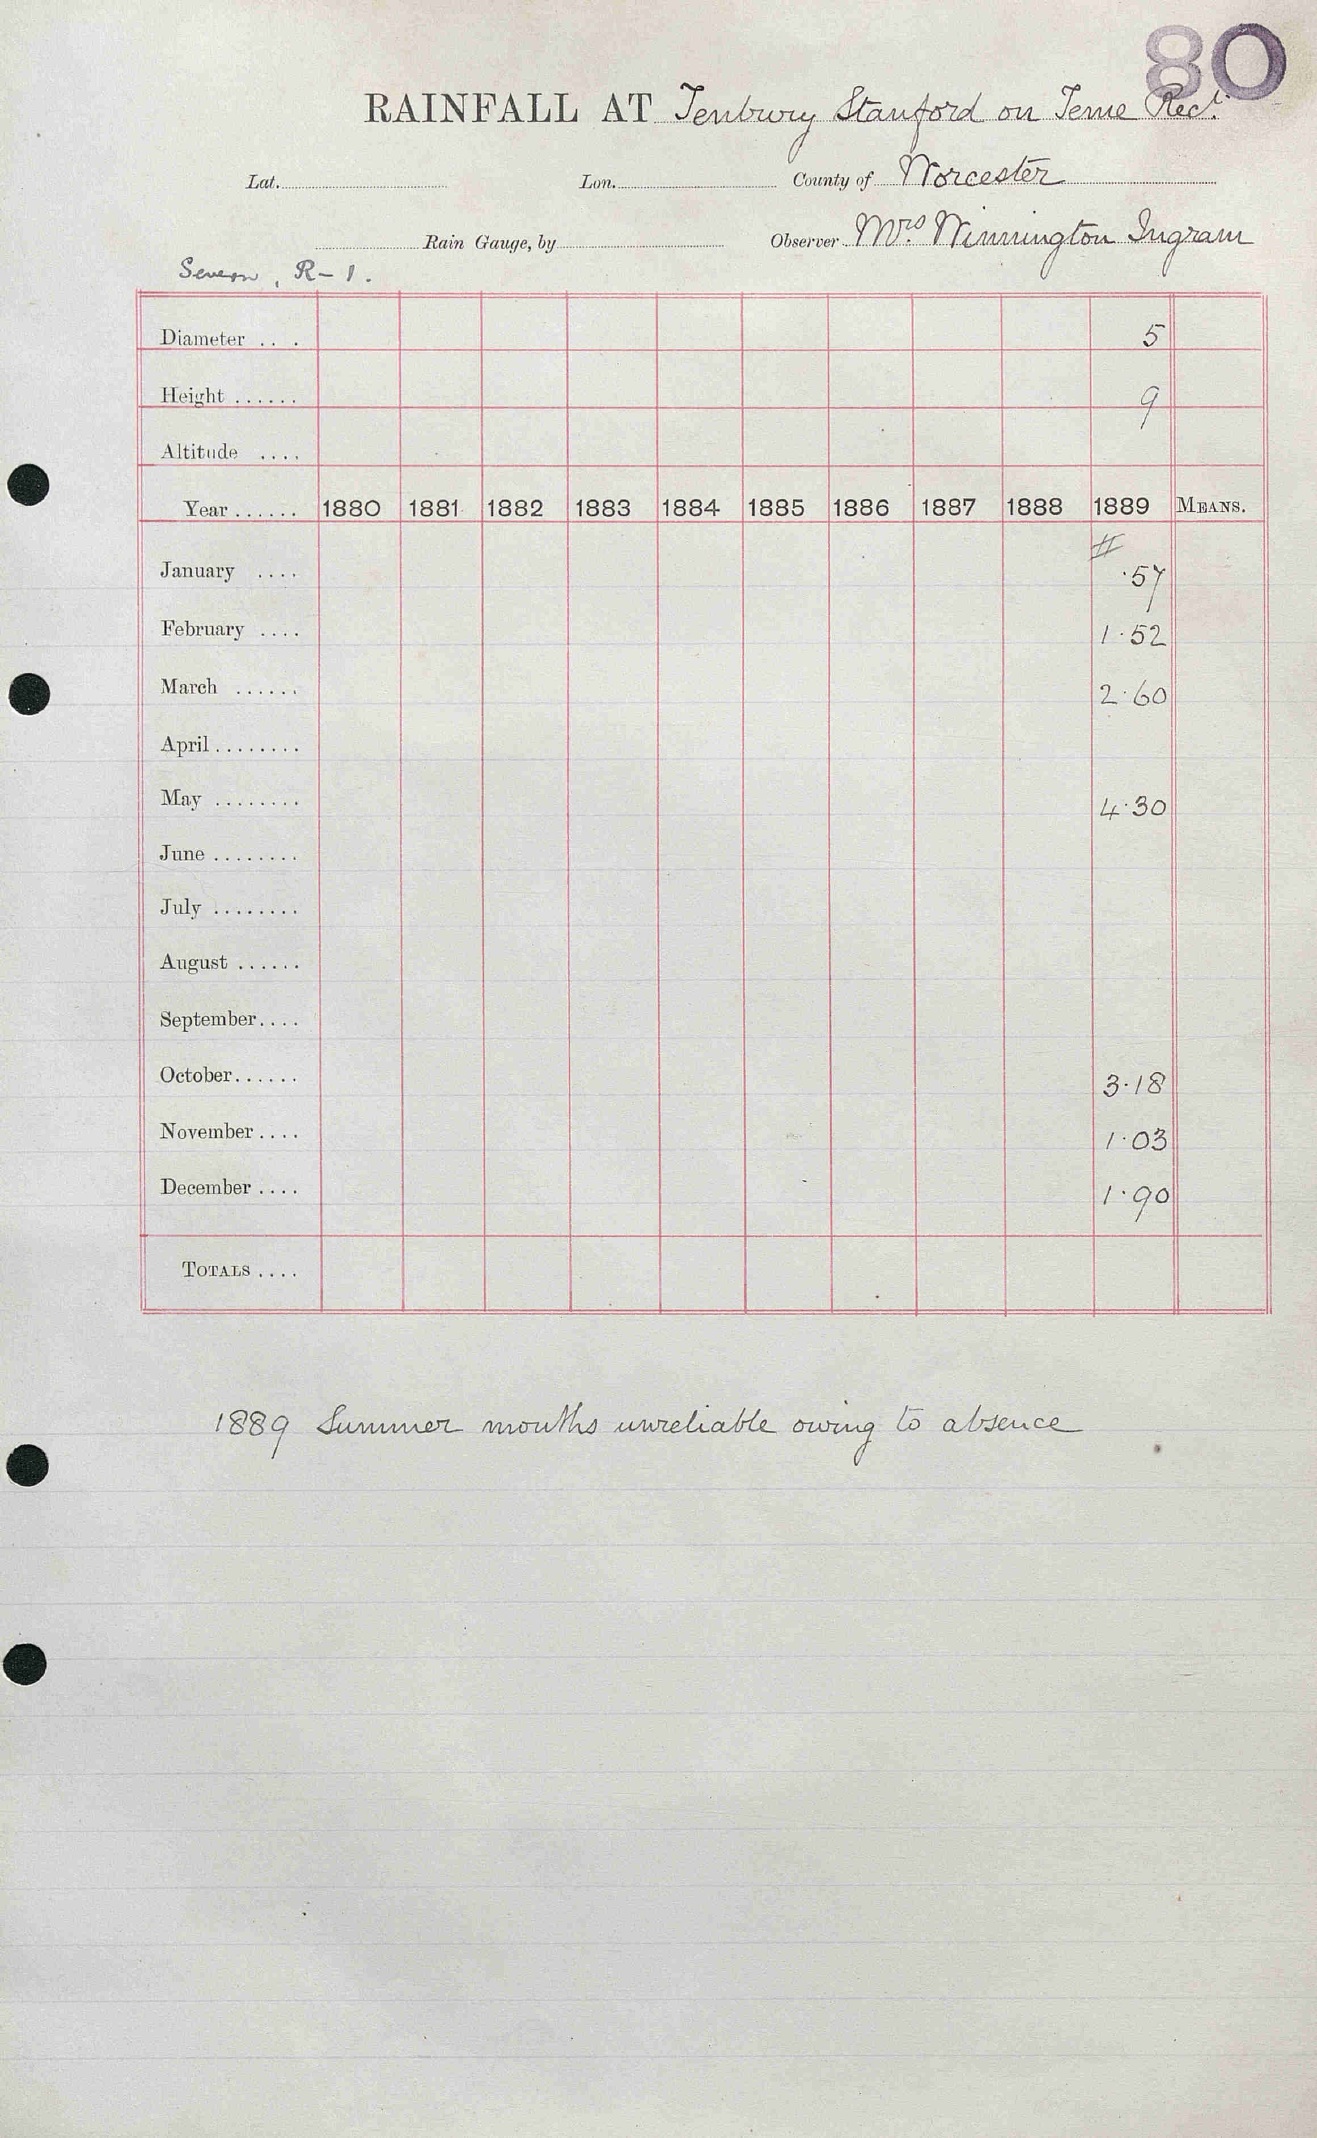 80
RAINFALL AT Tenbury Stanford on Teme Rect.
Lat. Lon. County of Worcester
Rain Gauge, by Observer Mrs. Winnington Ingram
Severn, R-1.
Diameter ... 5
Height ...... 9
Altitude ....
Year ...... 1880 1881 1882 1883 1884 1885 1886 1887 1888 1889 MEANS.
#
January .... .57
February .... 1.52
March ...... 2.60
April ........
May ........ 4.30
June ........
July ........
August ......
September ....
October ...... 3.18
November .... 1.03
December .... 1.90
TOTALS ....
1889 Summer months unreliable owing to absence